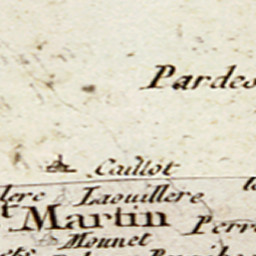 Pardes
Caillot
Laouillere
t Martin Perr
Mounnet